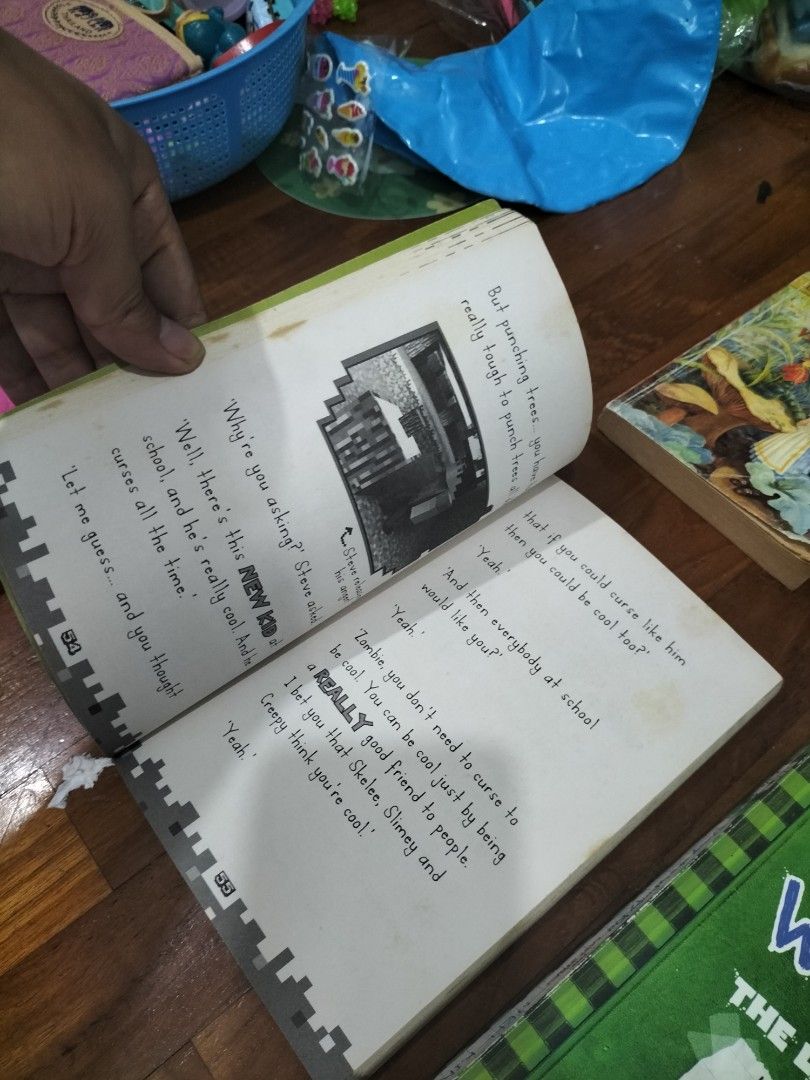 But punching trees... you have
really tough to punch trees
Steve
his
'Why're you asking?' Steve asked.
'Well, there's this NEW KID at
school, and he's really cool. And he
curses all the time.'
'Let me guess... and you thought
54
that if you could curse like him
then you could be cool too?'
'Yeah.'
'And then everybody at school
would like you?'
'Yeah.'
'Zombie, you don't need to curse to
be cool. You can be cool just by being
a REALLY good friend to people.
I bet you that Skelee, Slimey and
Creepy think you're cool.'
'Yeah.'
55
THE